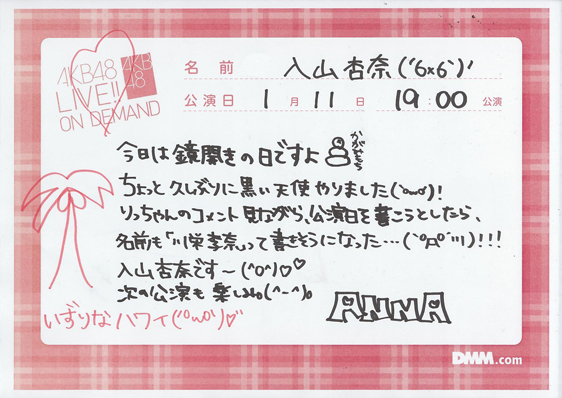 AKB48
LIVE!!
ON DEMAND
AKB
48
名前 入山杏奈('6x6`)'
公演日 1月11日 19:00 公演
今日は鏡開きの日ですよ かがみもち
ちょっと久しぶりに黒い天使やりました(`・ω・´)!
りっちゃんのコメント見ながら、公演日を書こうとしたら、
名前も「川栄李奈」って書きそうになった…(゜ロ゜;;;)!!!
入山杏奈です〜(^o^)♡
次の公演も楽しみ。(^-^)。
ANNA
いずりな ハワイ('ω')♡
DMM.com